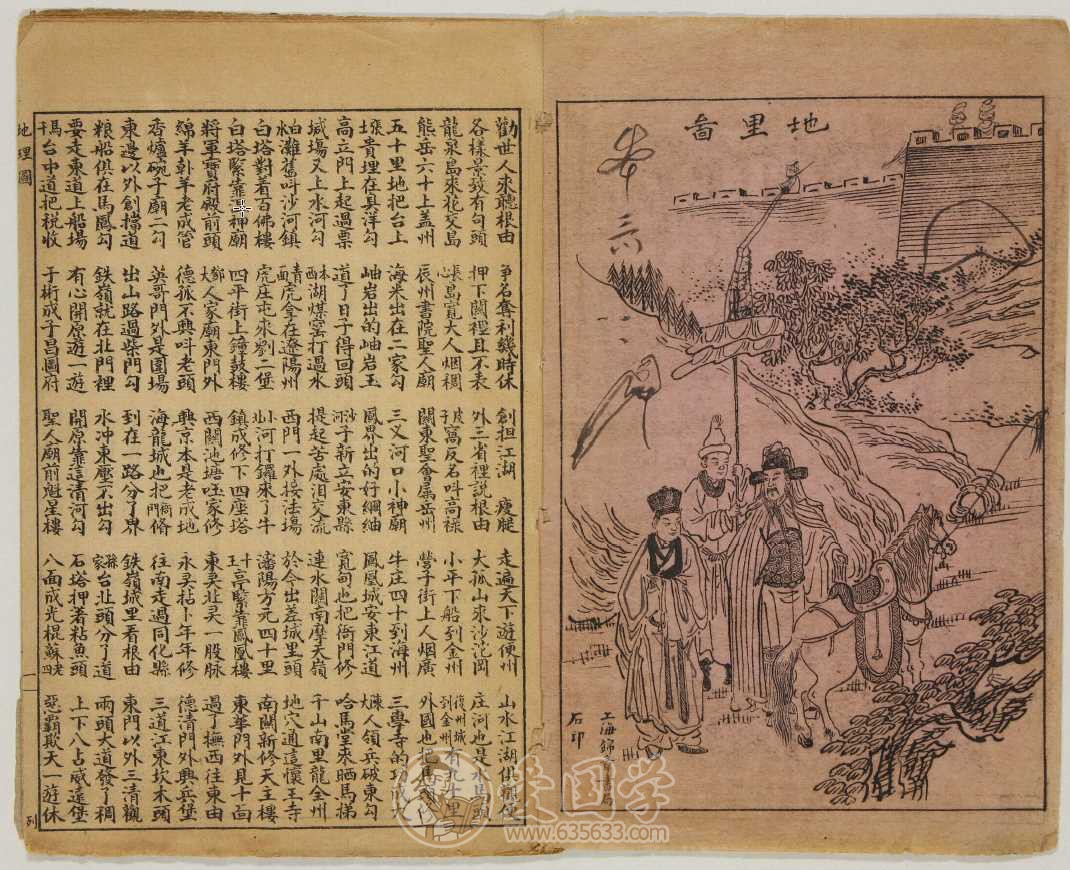 地里畵
上海錦文書局
石印
勸世人來聽根由 爭名奪利幾時休 創担江湖 瘦腿 走遍天下遊便州 山水江湖俱
各樣景致有句頭 押下關裡且不表 外三省裡說根由 大孤山來沙沱岡 庄河也是水馬頭
龍泉島來花交島 長島寬大人烟稠 皮子窩反名叫高祿 小年下船到金州 復州城到金州有九十里
熊岳六十上盖州 辰州書院聖人廟 關東聖會屬岳州 營子街上人烟廣 外國也把馬頭
五十里地把台上 海米出在二家勾 三叉河口小神廟 牛庄四十到海州 三學寺的功
壕貴埋在具洋勾 岫岩出的岫岩玉 鳳界出的好綢紬 鳳凰城安東江道 大人領兵破東勾
高立門上起過票 道了日子得回頭 沙河子新立安東縣 寬甸也把衙門修 哈馬堂來晒馬梯
城塲又上水河勾 本西湖煤窑打過水 提起苦處泪交流 連水關南摩天嶺 千山南里龍全州
白水灘舊叫沙河鎮 青面虎拿在遼陽州 西門一外接法塲 於今出差城里頭 地穴通這懷王寺
白塔對着百佛樓 虎庄屯來劉二堡 小北河打鑼來了牛 瀋陽方元四十里 南關新修天主樓
白塔緊靠神廟 四平街上鐘鼓樓 鎮成修下四座塔 十王高緊靠鳳凰樓 東華門外見十面
將軍寶府殿前頭 鄭大人家廟東門外 西關池塘旺家修 東灵北灵一股脉 過了撫西往東由
綿羊卧羊老成管 德孤不興叫老頭 興京本是老成地 永灵拈卜年年修 德清門外興兵堡
香爐碗子廟一勾 英哥門外是圍塲 海龍城也把衙門脩 往南走過同化縣 三道江東坎木頭
東邊以外創擋道 出山路過柴門勾 到在一路分了界 鉄嶺城里看根由 東門以外三清觀
粮船俱在馬鳳勾 鉄嶺就在北門裡 水冲東壓不出勾 孫家台北頭分了道 兩頭大道發了稠
要走東道上船場 有心開原遊一遊 開原靠這清河勾 石塔押著粘魚頭 上下八占威遠堡
馮千台中道把稅收 子術成子昌圖府 聖人廟前魁星樓 八面成光棍蘇四虎 惡霸欺天一遊休
地理圖
一
列
愛国学
www.635633.com